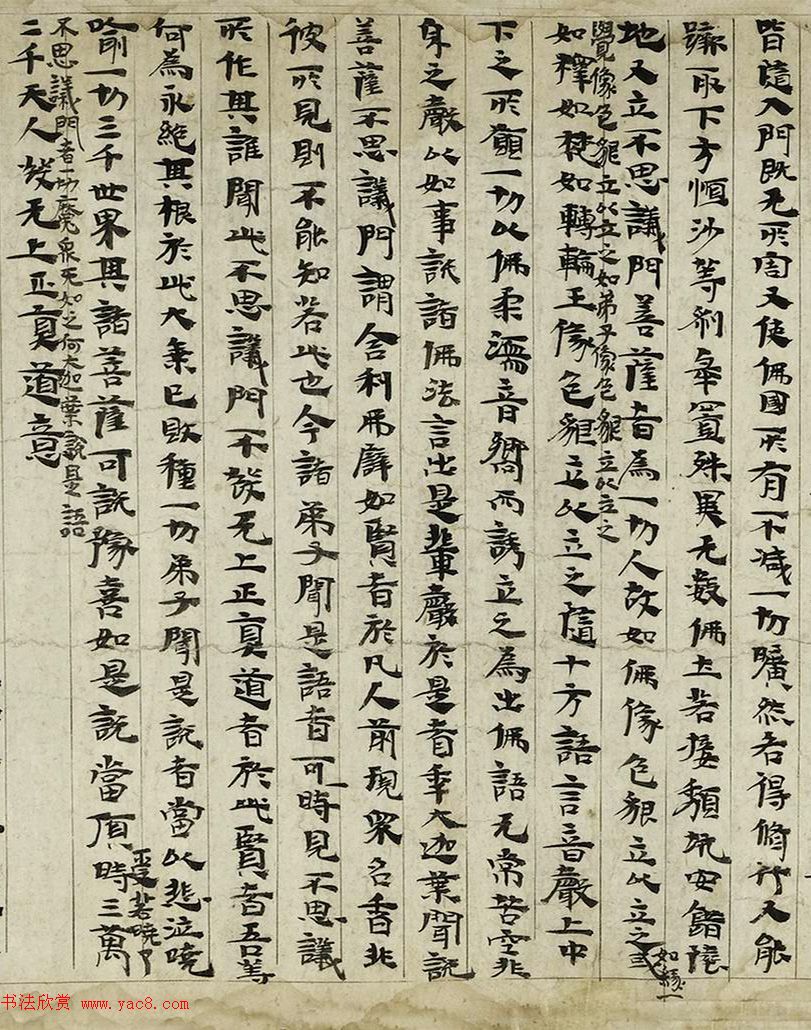 皆隨入門既无所窅又使佛國所有不減一切曠然各得修行又能
躃取下方恒沙等剎舉置殊異无數佛土若接頹坑安鋪陸
地又立不思議門菩薩者為一切人故如佛像色貌立以立之或
如緣一
覺像色貌立以立之如弟子像色貌立以立之
如釋如梵如轉輪王像色貌立以立之隨十方語言音聲上中
下之所願一切以佛柔濡音嚮而誘立之為出佛語无常苦空非
身之聲以如事說諸佛法言出是輩聲於是耆年大迦葉聞說
菩薩不思議門謂舍利弗譬如賢者於凡人前現眾名香非
彼所見則不能知若此也今諸弟子聞是語者可一時見不思議
所作其誰聞此不思議門不發无上正真道者於此賢者吾等
何為永絕其根於此大乘已敗種一切弟子聞是說者當以悲泣曉
喻一切三千世界其諸菩薩可說豫喜如是說當頂時三萬
受若曉了
不思議門者一切魔眾无如之何大迦葉說是語
二千天人發无上正真道意
书法欣赏 www.yac8.com